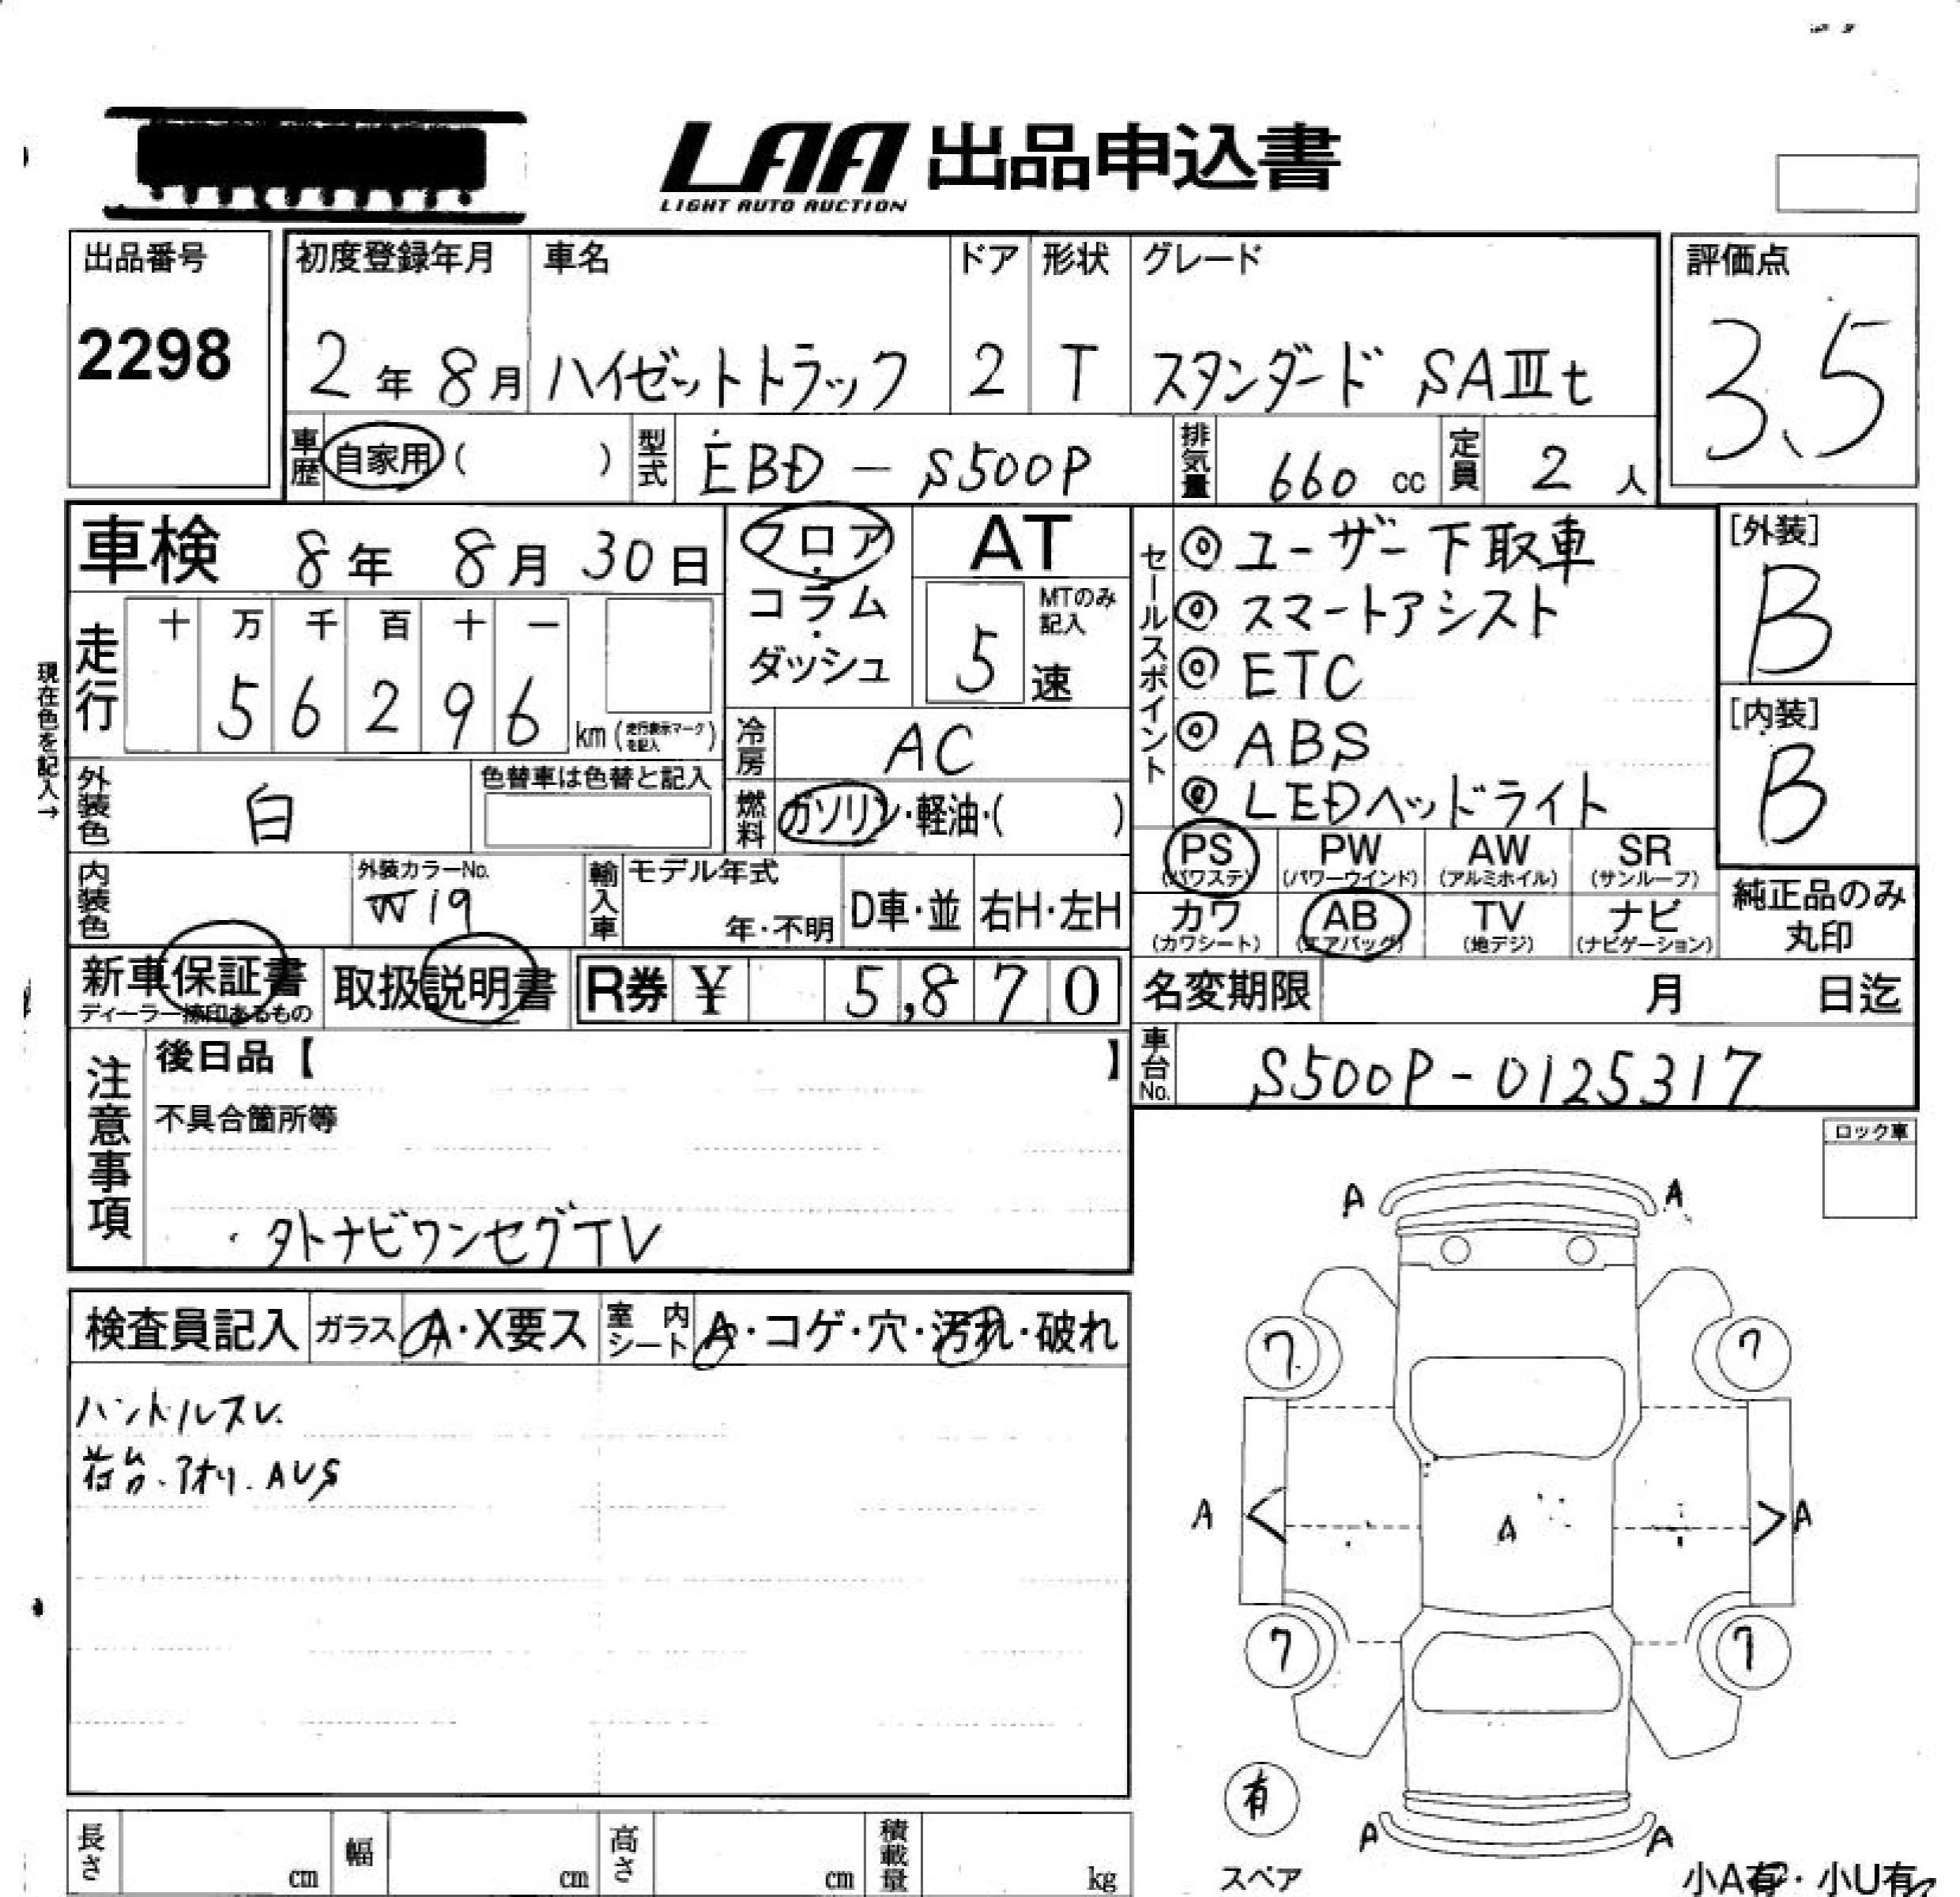 LAA 出品申込書
LIGHT AUTO AUCTION
出品番号
2298
初度登録年月 車名 ドア 形状 グレード
2年8月 ハイゼットトラック 2 T スタンダード SAⅢt
評価点
3.5
車歴 自家用 ( ) 型式 EBD-S500P 排気量 660 cc 定員 2 人
車検 8年 8月 30日
フロア・コラム・ダッシュ
AT
MTのみ記入
5 速
走行
十 万 千 百 十 一
5 6 2 9 6 km (走行表示マークを記入)
現在色を記入→
冷房 AC
外装色 白
色替車は色替と記入
燃料 ガソリン・軽油・( )
セールスポイント
◎ユーザー下取車
◎スマートアシスト
◎ETC
◎ABS
◎LEDヘッドライト
[外装]
B
[内装]
B
PS (パワステ) PW (パワーウインド) AW (アルミホイル) SR (サンルーフ)
カワ (カワシート) AB (エアバッグ) TV (地デジ) ナビ (ナビゲーション)
純正品のみ丸印
内装色
外装カラーNo.
W19
輸入車 モデル年式 年・不明 D車・並 右H・左H
新車保証書
ディーラー捺印あるもの
取扱説明書
R券 ¥ 5,870
名変期限 月 日迄
車台No. S500P-0125317
注意事項
後日品【 】
不具合箇所等
・外ナビワンセグTV
ロック車
検査員記入 ガラス A・X要ス 室内シート A・コゲ・穴・汚れ・破れ
ハンドルスレ
荷台・アオリ・AUS
A A
7 7
A A A
7 7
A A
有
スペア
小A有・小U有
長さ cm 幅 cm 高さ cm 積載量 kg